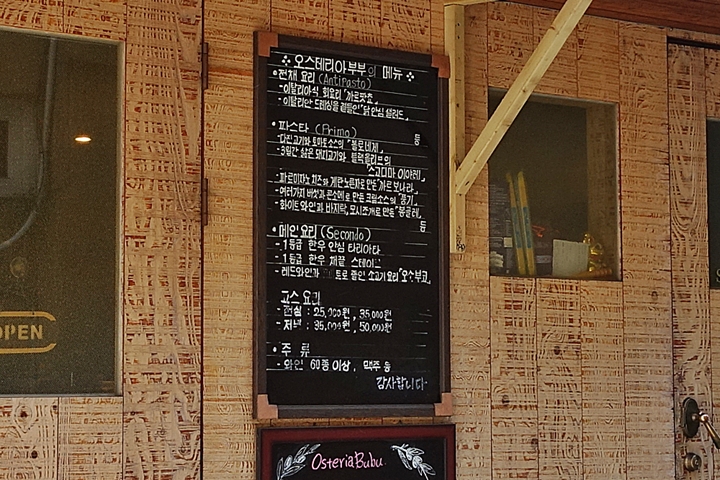 오스테리아부부의 메뉴
•전채 요리 (Antipasto)
-이탈리아식 회요리 "까르팟쵸"
-이탈리안 드레싱을 곁들인 "닭 안심 샐러드"
등
•파스타 (Primo)
-다진고기와 토마토소스의 "볼로네제"
-3일간 삶은 돼지고기와 블랙올리브의
"스고디마 이알레"
-파르미자노 치즈와 계란 노른자로 만든 "까르보나라"
-여러가지 버섯과 콘소메로 만든 크림소스의 "풍기"
-화이트와인과 바지락, 모시조개로 만든 "봉골레"
등
•메인 요리 (Secondo)
-1등급 한우 안심 타리아타
-1등급 한우 채끝 스테이크
-레드와인과 토로 졸인 소고기요리 "오수부코"
코스 요리
-점심 : 25,000원, 35,000원
-저녁 : 35,000원, 50,000원
•주 류
-와인 60종 이상, 맥주 등
감사합니다
OsteriaBubu
OPEN